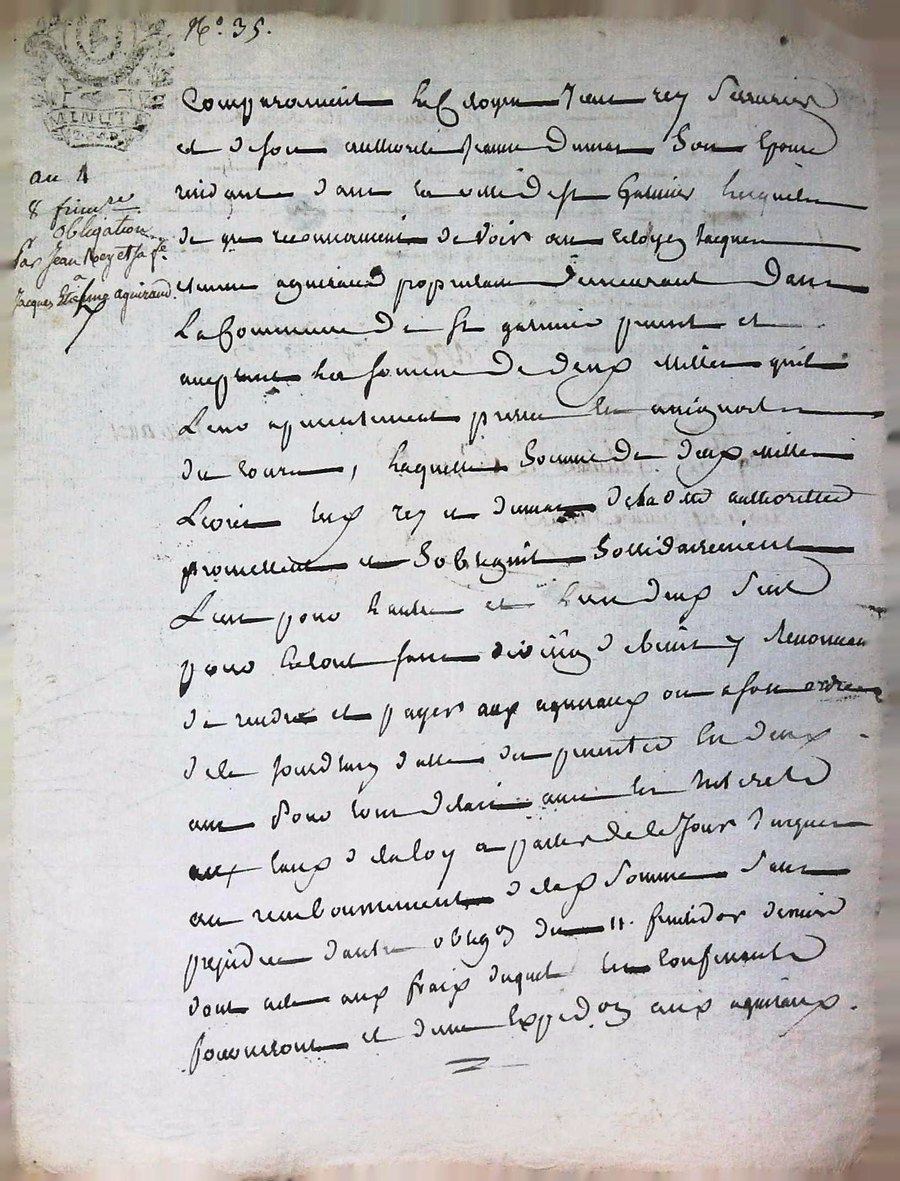 N.° 35.
MINUTE
an 4
8 frimre
obligation
Par Jean Rey et sa fe.
a
Jacques Etienne aguiraud.
Comparoissent le Citoyen Jean rey Serrurier
et de son authorité Jeanne Dumas Son Epouse
residants dans la ville de st Galmier lesquels
de gré reconnaissent devoir au Citoyen Jacques
etienne aguiraud proprietaire demeurant dans
La Commune de st galmier present et
acceptant la somme de deux Milles quil
Leur a presentement en assignats
du cours, laquelle Somme de deux Milles
Livres les rey et dumas de la ditte authoritté
promettent et Sobligent Sollidairement
L'un pour l'autre et l'un deux Seul
pour le tout sans division y Renoncant
de rendre et payer aux aguiraux ou a son ordre
de ce jourdhuy datte des presentes en deux
ans pour tout delais avec les Interets
aux taux de la loy a partir de ce Jour Jusques
au remboursement de la de Somme Sans
prejudice dautre obligon du 11. fructidor dernier
dont acte aux fraix duquel les confessants
fourniront et d'une Expedon aux aguiraux.